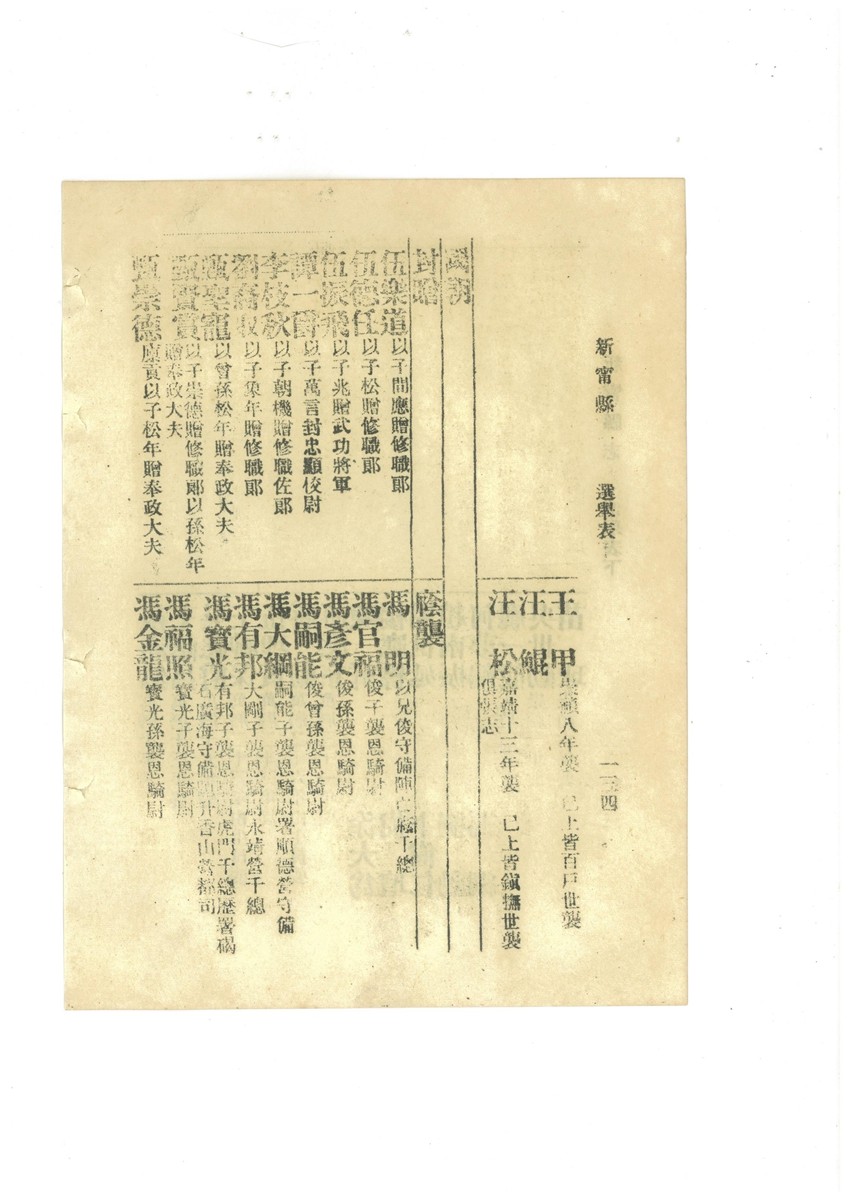 新甯縣 選舉表下 一三四
王甲 崇禎八年襲 已上皆百戶世襲
汪鯤
汪松 嘉靖十三年襲 已上皆鎮撫世襲
俱張志
國朝
封贈
伍樂道 以子間應贈修職郎
伍德任 以子松贈修職郎
伍振飛 以子兆贈武功將軍
譚一爵 以子萬言封忠顯校尉
李枝秋 以子朝機贈修職佐郎
劉 以子象年贈修職郎
甄聖寵 以曾孫松年贈奉政大夫
甄賢賞 以子崇德贈修職郎以孫松年
贈奉政大夫
甄崇德 廩貢以子松年贈奉政大夫
廕襲
馮明 以兄俊守備陣亡廕千總
馮官福 俊子襲恩騎尉
馮彥文 俊孫襲恩騎尉
馮嗣能 俊曾孫襲恩騎尉
馮大綱 嗣能子襲恩騎尉署順德營守備
馮有邦 大剛子襲恩騎尉永靖營千總
馮寶光 有邦子襲恩騎尉虎門千總歷署碣
石廣海守備題升香山營都司
馮福照 寶光子襲恩騎尉
馮金龍 寶光孫襲恩騎尉